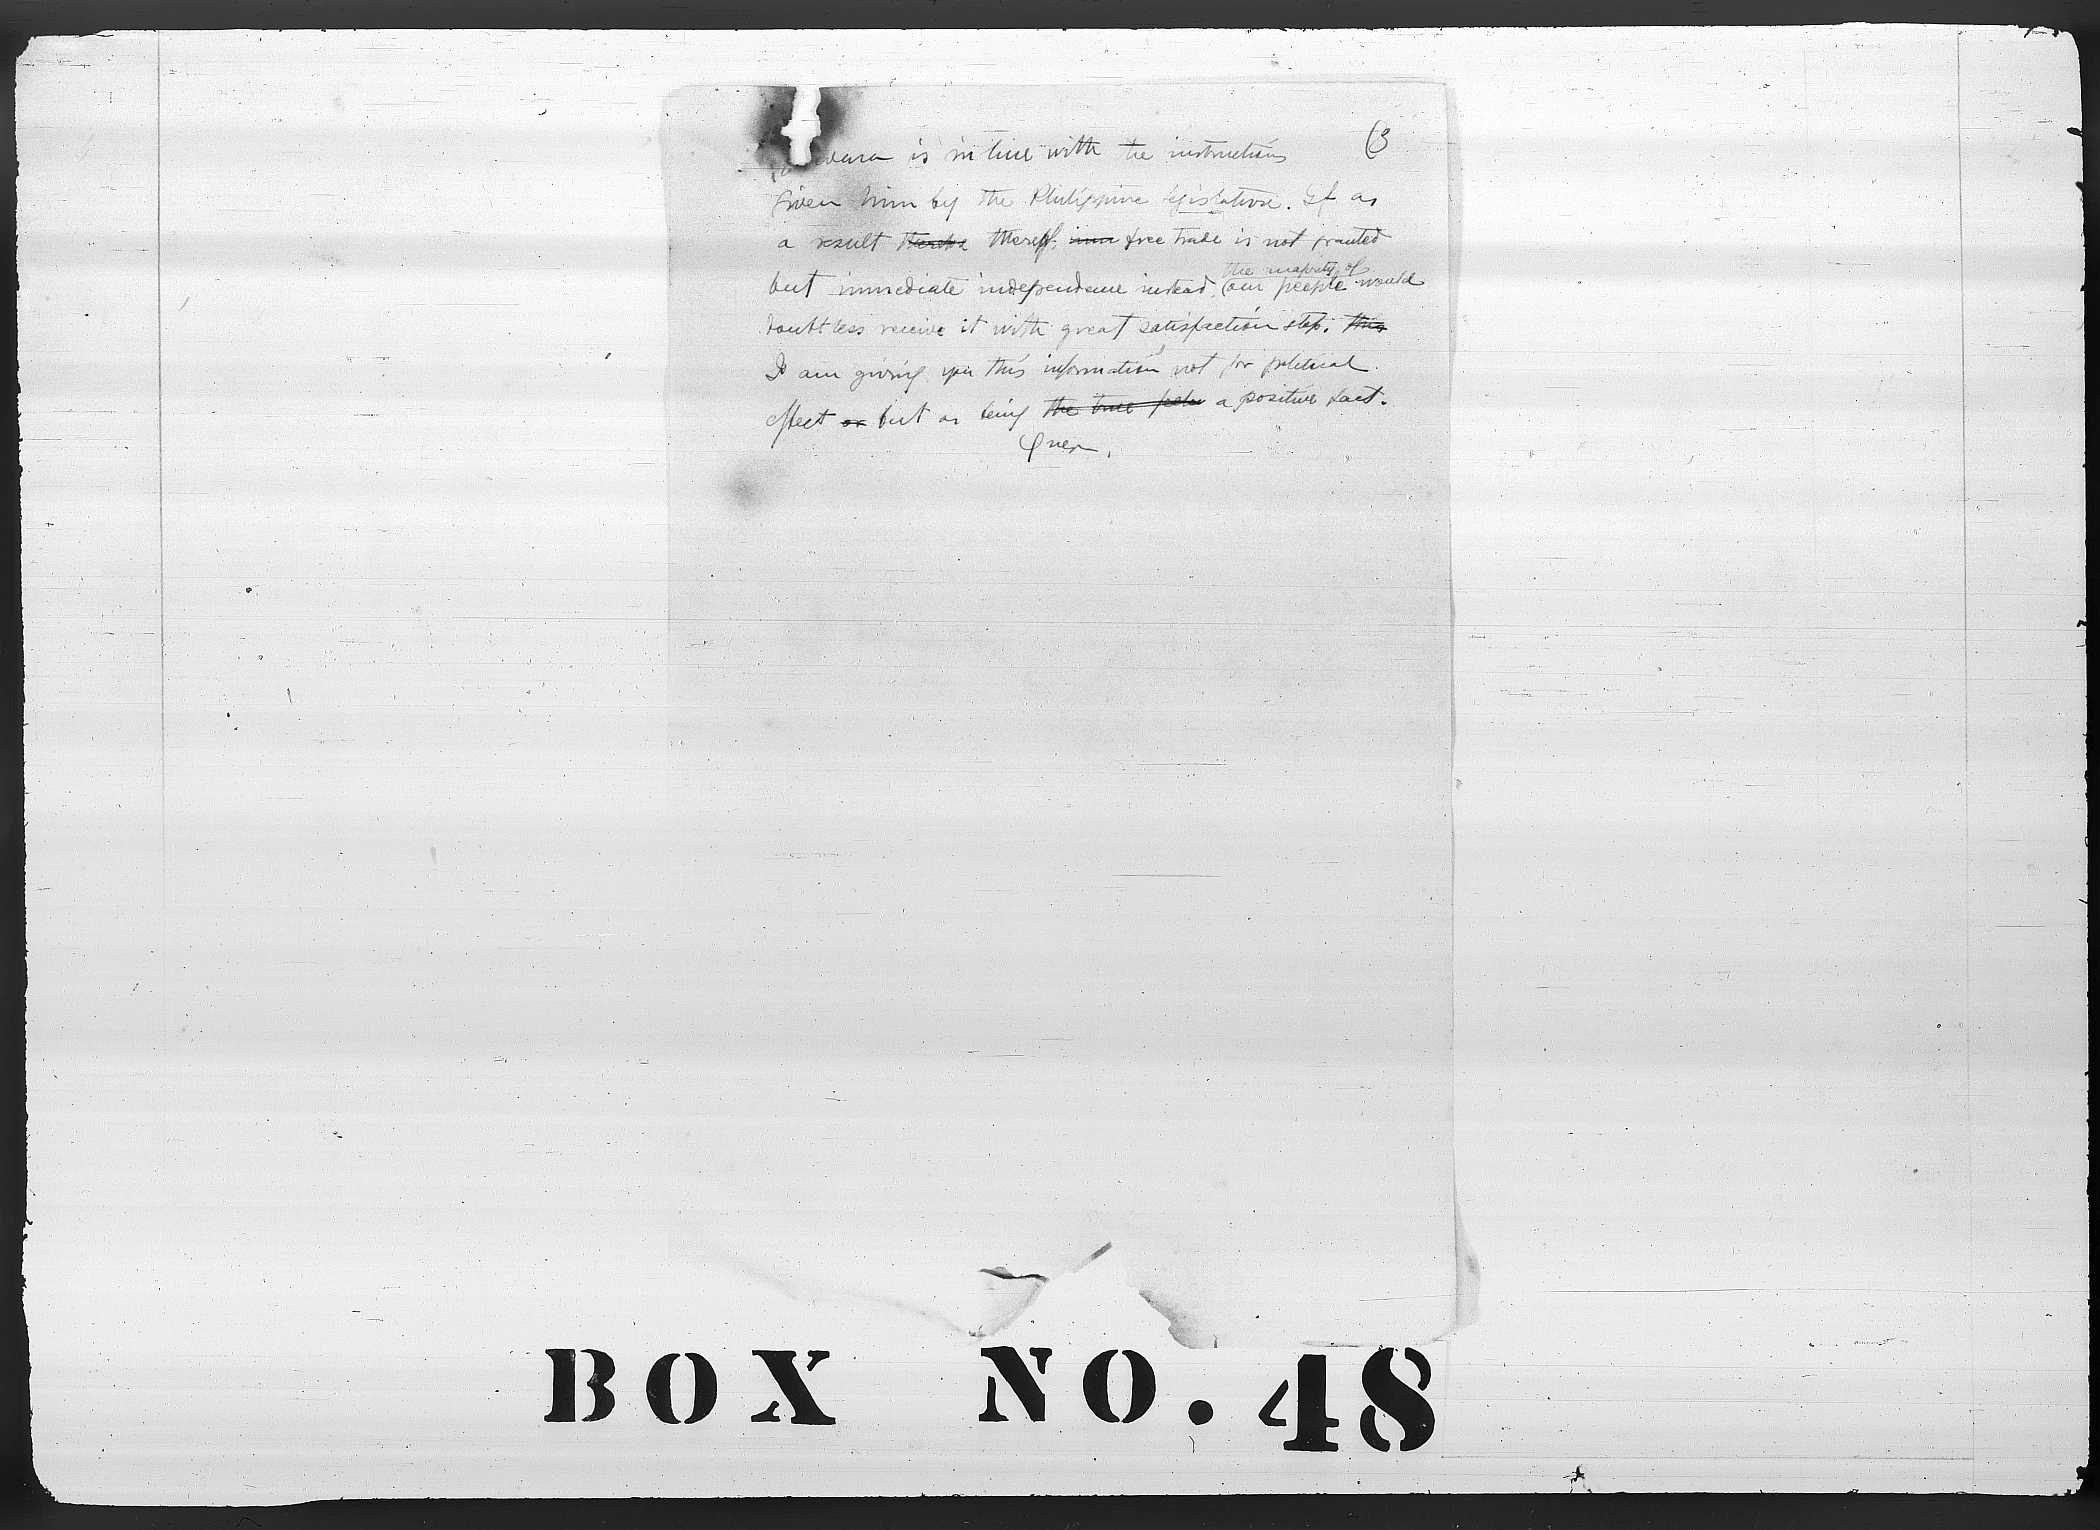 (3
is in line with the instructions
given him by the Philippine legislature. If as
a result thereof, free trade is not granted
but immediate independence instead, (the majority of
our people would
doubtless receive it with great satisfaction stop. this
I am giving you this information not for political
effect or but as being the true a positive fact.
BOX NO. 48